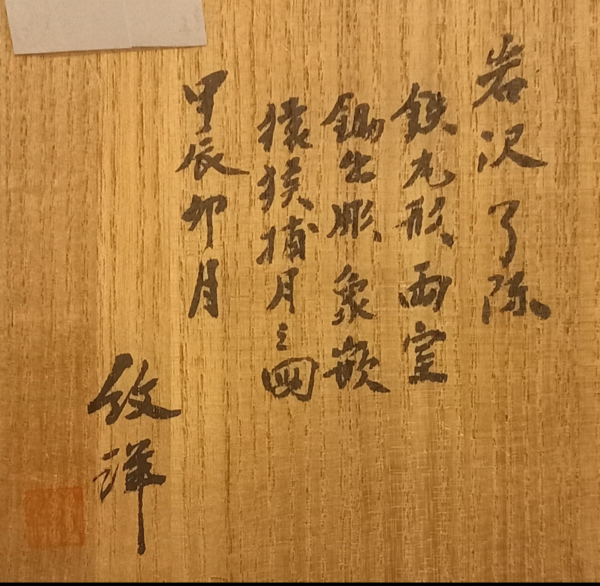 岩沢 了
鉄丸形 両室
鋤出彫 象嵌
猿猴捕月之図
甲辰卯月
洋